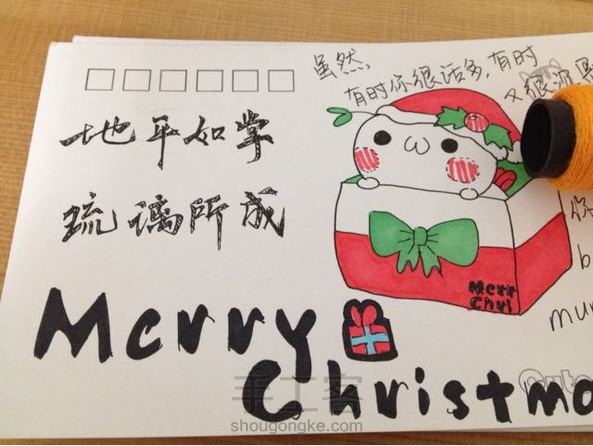 虽然
有时你很话多,有时
又很
地平如掌
琉璃所成
Merry
Chri
你
b
mu
Merry
Christma
手工客
shougongke.com